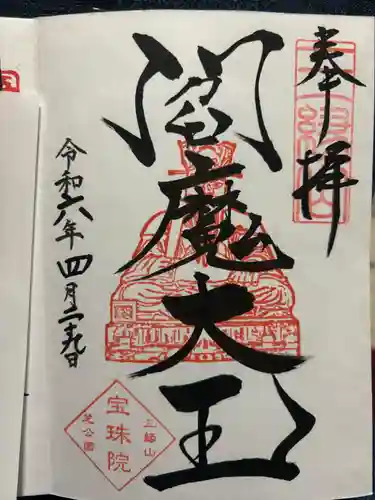 奉拝
閻魔大王
令和六年四月二十九日
三縁山
宝珠院
芝公園